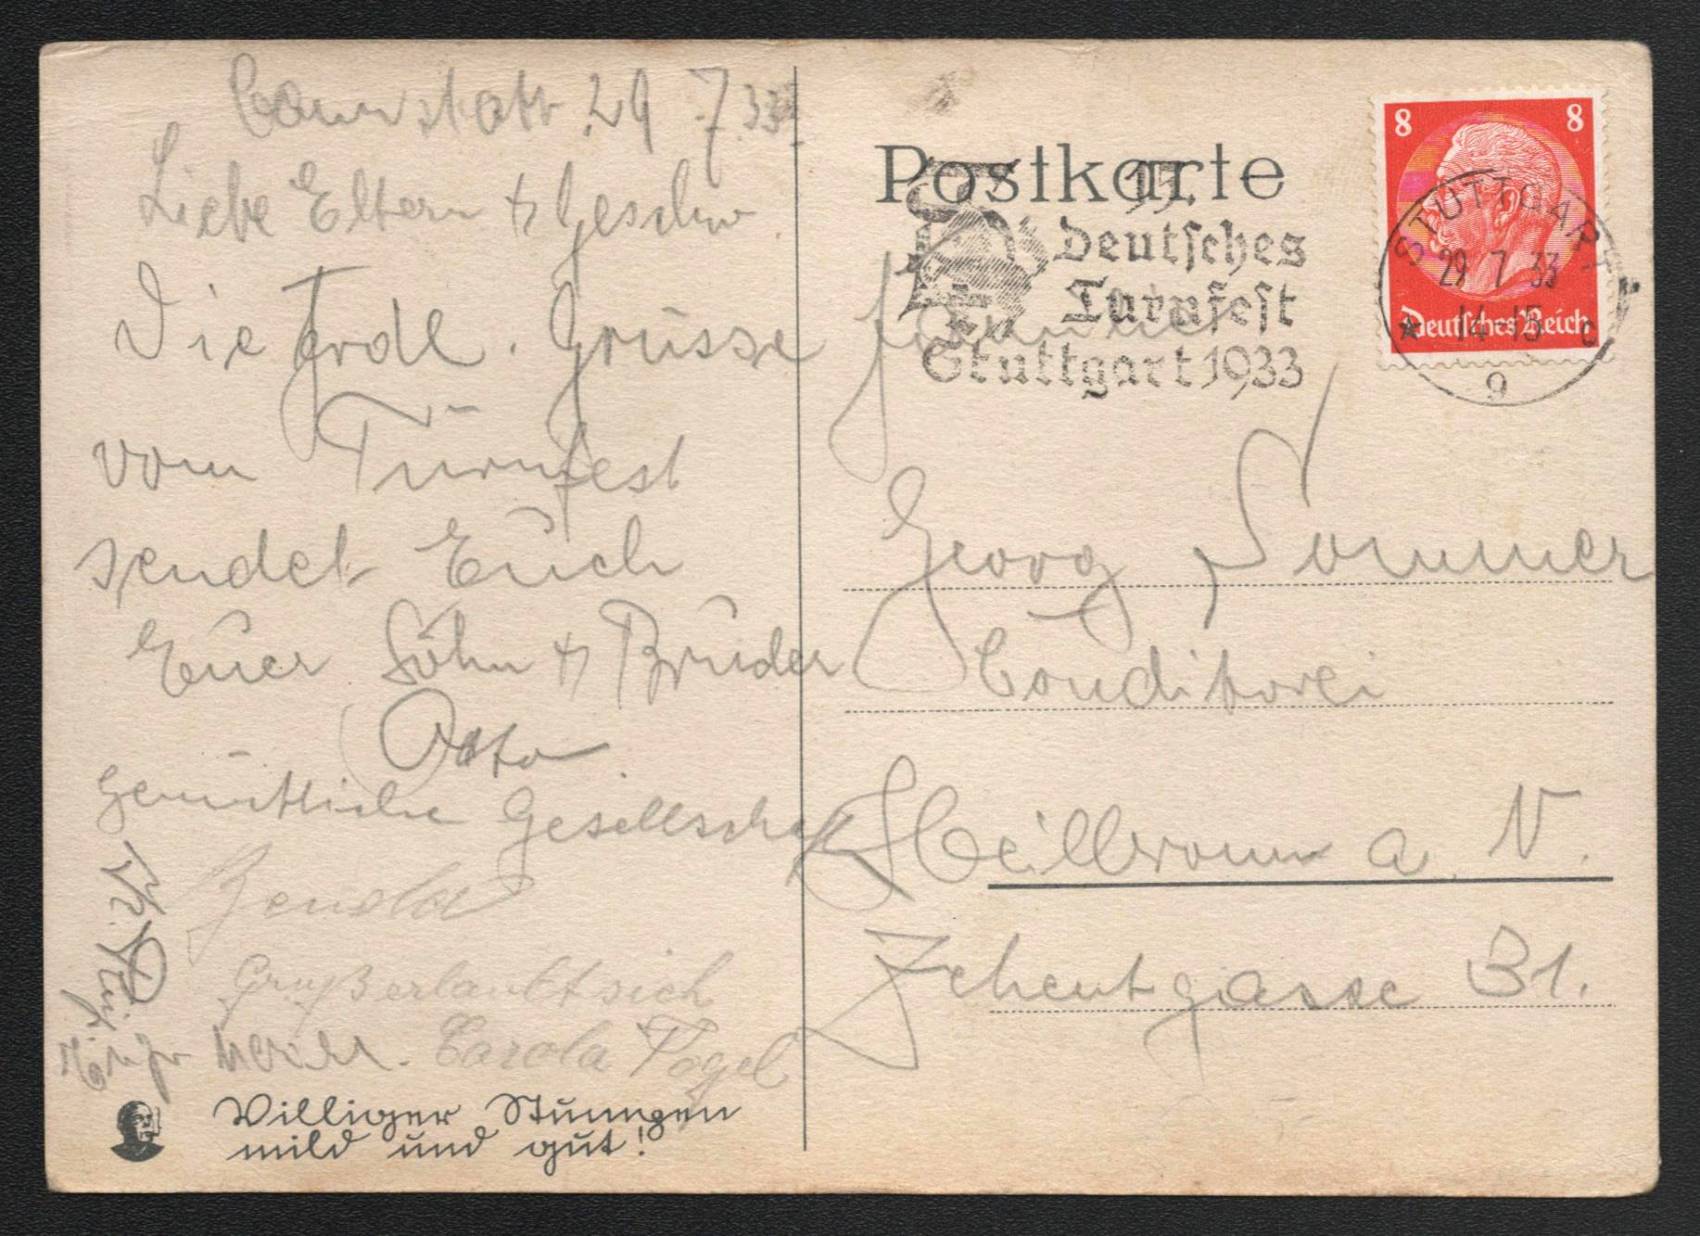 Cannstatt 29 7 33
Liebe Eltern & Geschw
Die frdl. Grüsse
vom Turnfest
sendet Euch
Euer Sohn & Bruder
Otto
gemütliche Gesellschaft
Gruß erlaubt sich
Carola Vogel
Villiger Stumpen
mild und gut!
Postkarte
15.
Deutsches
Turnfest
Stuttgart 1933
8 8
Deutsches Reich
STUTTGART
29 7 33
14-15
9
Familie
Georg Sommer
Conditorei
Heilbronn a. N.
Zehentgasse 31.